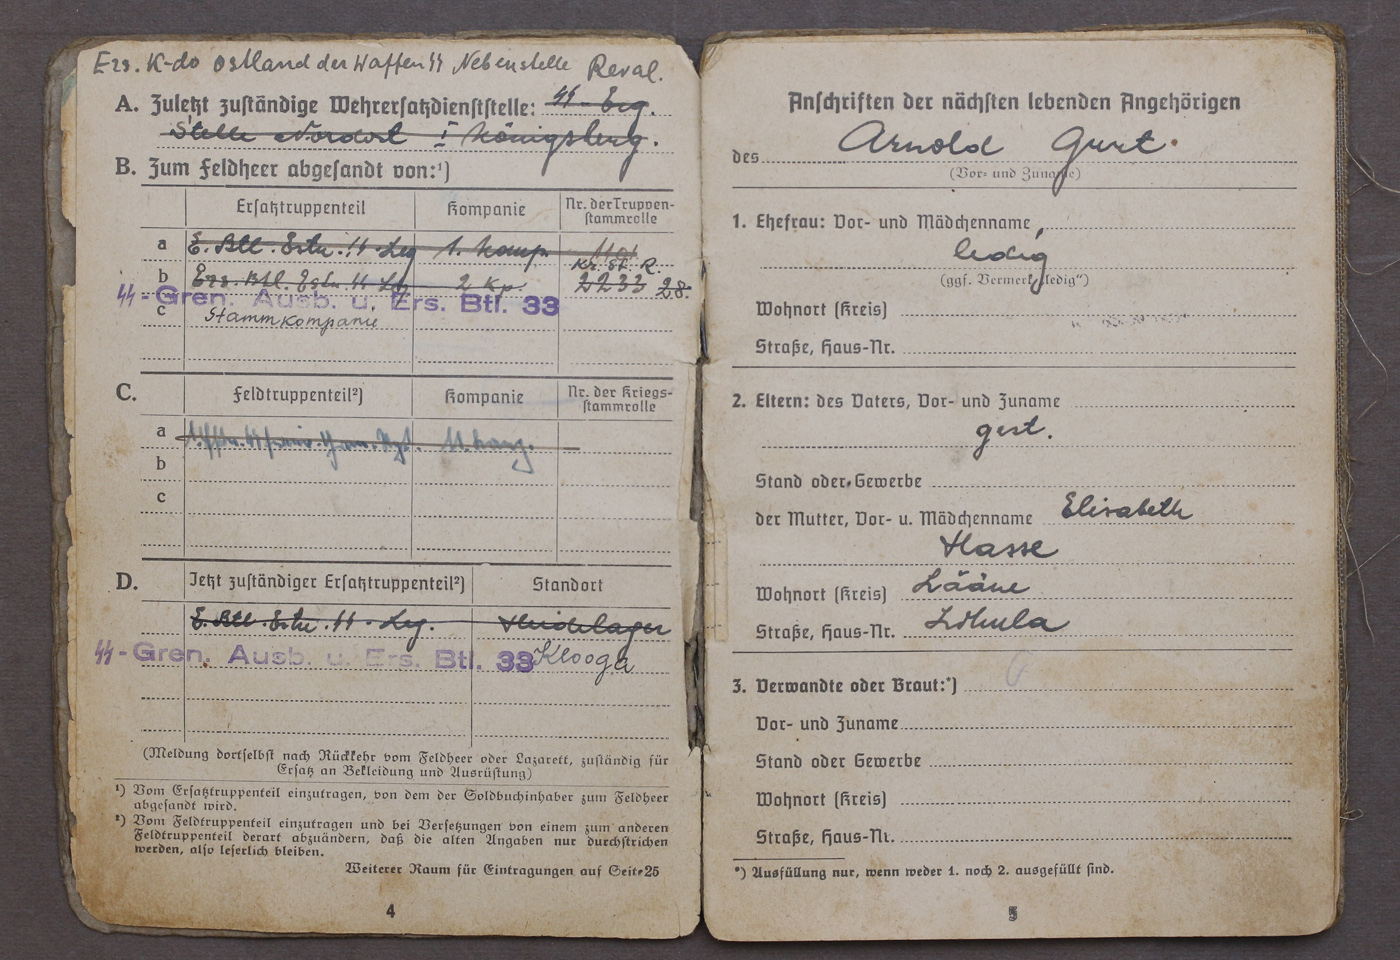 Ers. K-do Ostland der Waffen SS Nebenstelle Reval.
A. Zuletzt zuständige Wehrersatzdienststelle: SS-Erg.
Stelle Nordost I Königsberg.
B. Zum Feldheer abgesandt von:¹)
Ersatztruppenteil Kompanie Nr. der Truppen-
stammrolle
a E. Btl. Estn. SS-Leg 1. Komp.
Kr. St. R.
b Ers. Btl. Estn. SS Leg 2 Kp. 2233 28.
SS-Gren. Ausb. u. Ers. Btl. 33
c Stammkompanie
C. Feldtruppenteil²) Kompanie Nr. der Kriegs-
stammrolle
a
b
c
D. Jetzt zuständiger Ersatztruppenteil²) Standort
E. Btl. Estn. SS-Leg. Heidelager
SS-Gren. Ausb. u. Ers. Btl. 33 Klooga
(Meldung dortselbst nach Rückkehr vom Feldheer oder Lazarett, zuständig für
Ersatz an Bekleidung und Ausrüstung)
¹) Vom Ersatztruppenteil einzutragen, von dem der Soldbuchinhaber zum Feldheer
abgesandt wird.
²) Vom Feldtruppenteil einzutragen und bei Versetzungen von einem zum anderen
Feldtruppenteil derart abzuändern, daß die alten Angaben nur durchstrichen
werden, also leserlich bleiben.
Weiterer Raum für Eintragungen auf Seite 25
4
Anschriften der nächsten lebenden Angehörigen
des Arnold Gurt.
(Vor- und Zuname)
1. Ehefrau: Vor- und Mädchenname
ledig
(ggf. Vermerk „ledig“)
Wohnort (Kreis)
Straße, Haus-Nr.
2. Eltern: des Vaters, Vor- und Zuname
gest.
Stand oder Gewerbe
der Mutter, Vor- u. Mädchenname Elisabeth
Hasse
Wohnort (Kreis) Lääne
Straße, Haus-Nr. Lihula
3. Verwandte oder Braut:*)
Vor- und Zuname
Stand oder Gewerbe
Wohnort (Kreis)
Straße, Haus-Nr.
*) Ausfüllung nur, wenn weder 1. noch 2. ausgefüllt sind.
5